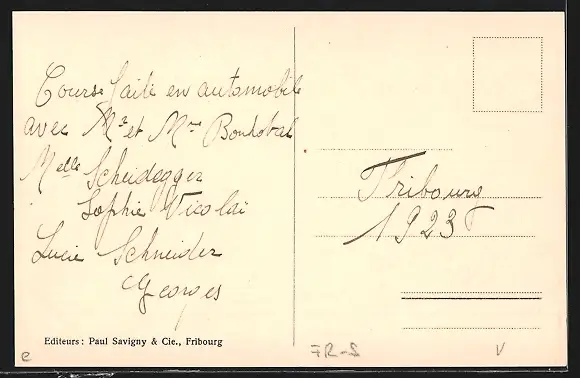 Course faite en automobile
avec Mr et Mme
Melle Scheidegger
Sophie Nicolai
Lucie Schneider
Georges
Editeurs: Paul Savigny & Cie., Fribourg
Fribourg
1923
FR-S
V
e